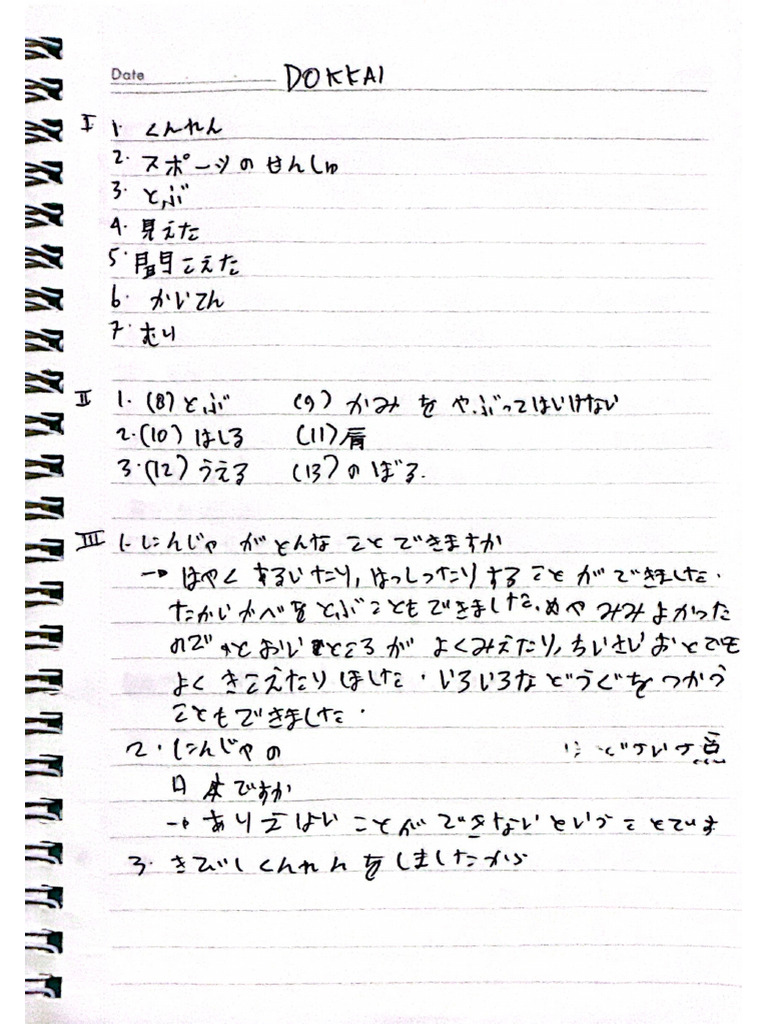 Date DOKKAI
I 1. くんれん
2. スポーツのせんしゅ
3. とぶ
4. 見えた
5. 聞こえた
6. かいてん
7. むり
II 1. (8) とぶ (9) かみをやぶってはいけない
2. (10) はしる (11) 肩
3. (12) うえる (13) のぼる.
III 1. にんじゃがどんなことできますか
→ はやくあるいたり, はっしったりすることができました.
たかいかべをとぶこともできました. めやみみよかった
のでとおいところがよくみえたり, ちいさいおとでも
よくきこえたりしました. いろいろなどうぐをつかう
こともできました.
2. にんじゃの
日本ですか
→ ありえないことができないということです
3. きびしくんれんをしましたから